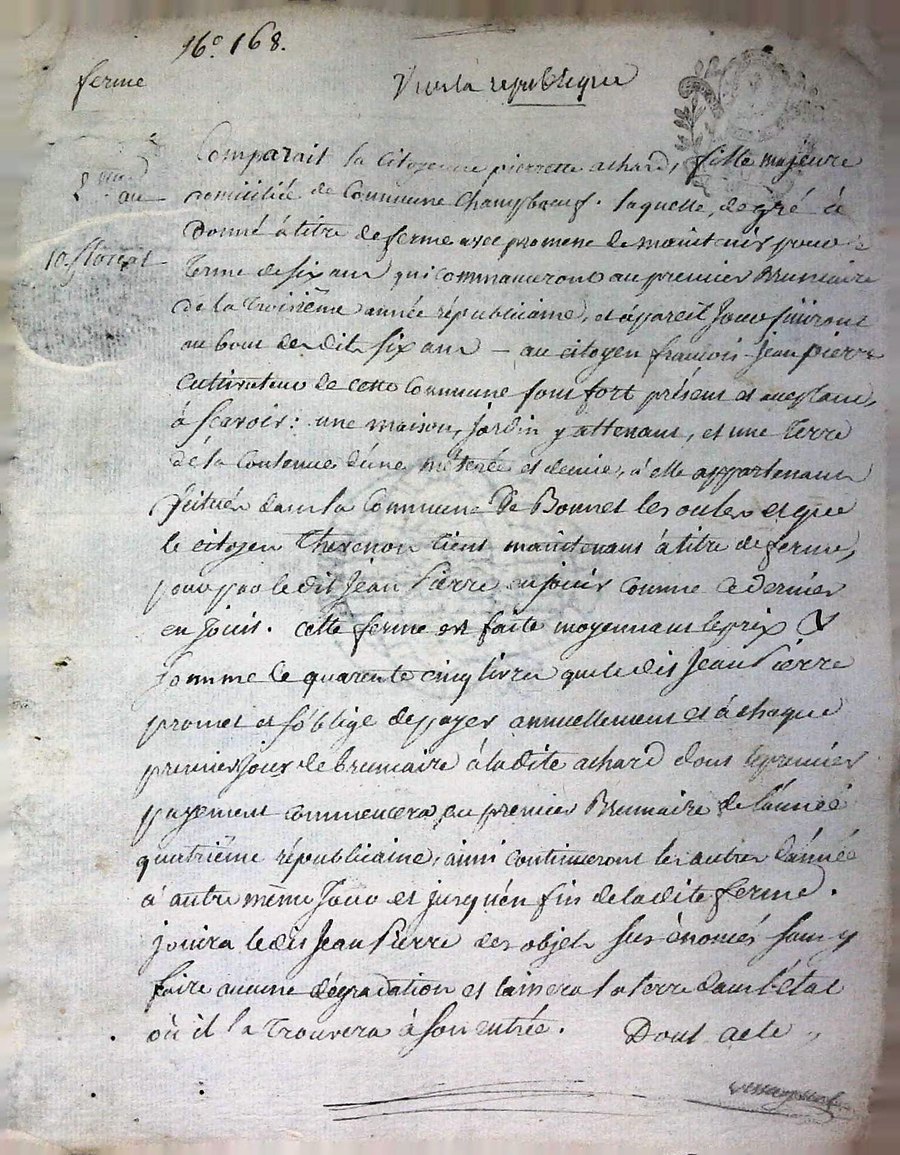 No. 168.
ferme
Vive la republique
Comparait la Citoyenne pierrette achard, fille majeure
2
an
domiciliée de Commune Champbœuf. laquelle, de gré à
Donné à titre de ferme avec promesse de maintenir pour le
10 floreal
Terme de six ans qui commanceront au premier Brumaire
de la Troisième année républicaine, et à pareil Jour finiront
au bout desdits six ans — au citoyen francois jean pierre
Cultivateur de cette Commune présent et
à Scavoir: une maison, jardin y attenant, et une Terre
de la Contenue d'une méterée et demie, à elle appartenant
Situés dans la Commune De Bonnet les oules et que
le citoyen Thevenon tient maintenant à titre de ferme,
pour par le dit Jean Pierre en jouir comme ce dernier
en Jouit. cette ferme est faite moyennant le prix &
Somme de quarente cinq livres que le dit Jean Pierre
promet et s'oblige de payer annuellement et à chaque
premier jour de brumaire à la dite achard dont le premier
payement commencera au premier Brumaire de l'année
quatrième républicaine, ainsi continueront les autres d'année
à autre même Jour et jusqu'en fin de la dite ferme.
jouira le dit Jean Pierre des objets sus énomés sans y
faire aucune dégradation et laissera la terre dans l'état
où il la Trouvera à son entrée. Dont acte